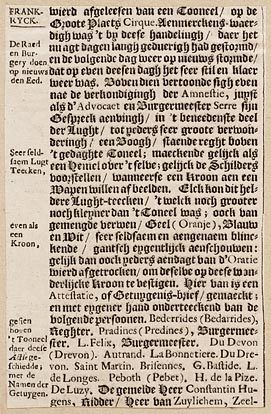 FRANK-
RYCK.
De Raed
en Bur-
gery doen
op nieuws
den Eed.
Seer seld-
saem Lugt
Teecken,
even als
een
Kroon,
gesien
boven
't Tooneel
daer deese
Actie ge-
schiedde;
met de
Namen der
Getuygen.
wierd afgeleesen van een Tooneel / op de
Groote Plaets Cirque. Aenmerckens-waer-
digh was 't by deese handelingh / daer het
nu agt dagen langh geduerigh had gestormd/
en de volgende dag weer op nieuws stormde/
dat op even deesen dagh het seer stil en klaer
weer was. Boven dien vertoonde sigh even
nae de verkondigingh der Amnestie, juyst
als d'Advocaet en Burgermeester Serre sijn
Gespreck aenvingh / in 't beneedenste deel
der Lught / tot yeders seer groote verwon-
deringh / een Boogh / staende reght boven
't gedaghte Tooneel; maeckende gelijck als
een Hemel over 't selve; gelijck de Schilders
voorstellen / wanneer se een Kroon aen een
Wapen willen afbeelden. Elck kon dit hel-
dere Lught-teecken / 't welck noch grooter
noch kleyner dan 't Tooneel was; oock van
gemengde verwen / Geel (Oranje), Blauw
en Wit / seer seldsaem en aengenaem blinc-
kende / gantsch eygentlijck aenschouwen:
gelijk dan oock yeders aendagt van d'Oratie
wierd afgetrocken, om deselve op deese won-
derlijcke Kroon te vestigen. Hier van is een
Attestatie, of Getuygenis-brief / gemaeckt;
en met eygener hand onderteeckend van de
volgende persoonen. Bederrides (Bedarrides),
Reghter. Pradines (Predines), Burgermee-
ster. L. Felix, Burgermeester. Du Devon
(Drevon). Autrand. La Bonnetiere. Du Dre-
von. Saint Martin. Brisennes, G. Bastide. L.
de Longes. Peboth (Pebet). H. de la Pize.
De Luzy. De gemelde Heer Constantin Hu-
gens, Ridder / Heer van Zuylichem, Zeel-